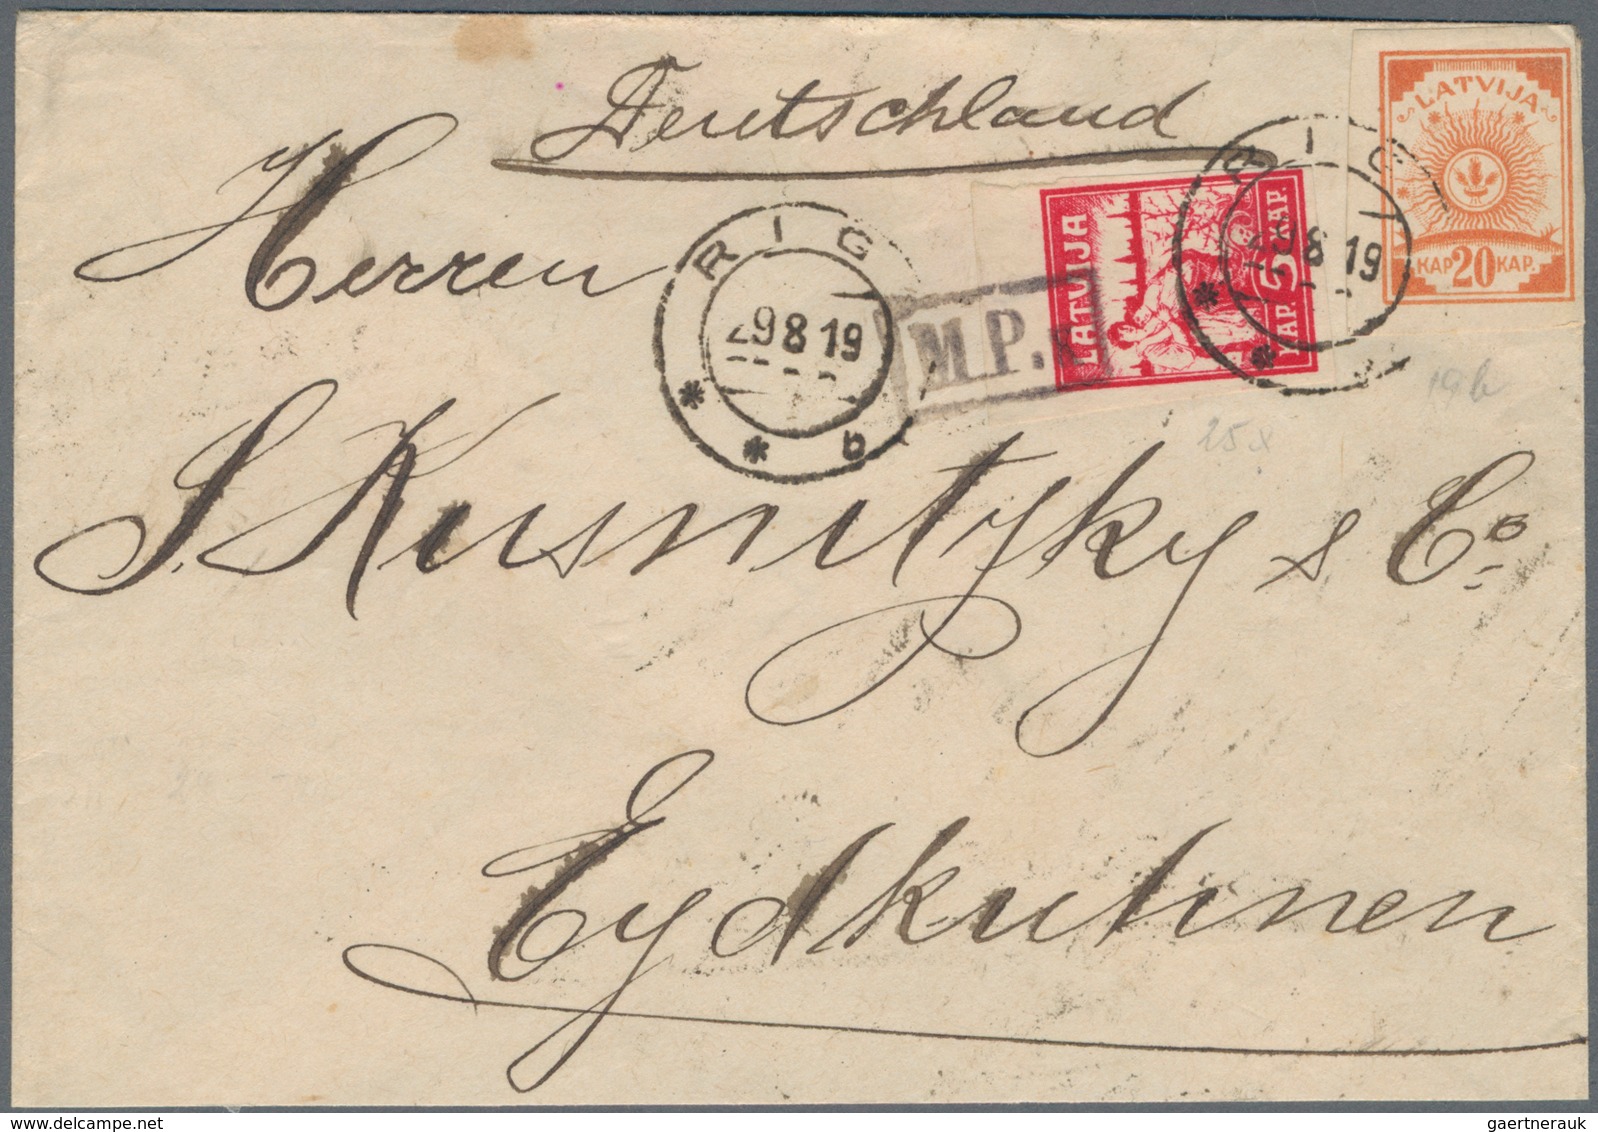 Deutschland
LATVIJA
KAP 20 KAP.
LATVIJA
KAP. 5 KAP.
RIG
29 8 19
* * b
RIG
29 8 19
* *
M.P.
Herren
S. Kusnitzky & Co
Eydkuhnen
19b
25x
gaertnerauk @ delcampe.net